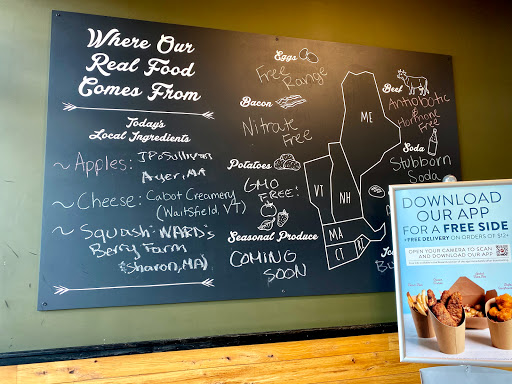 Where Our
Real Food
Comes From
Today's
Local Ingredients
~ Apples: J.P. Sullivan
Ayer, MA
~ Cheese: Cabot Creamery
(Waitsfield, VT)
~ Squash: WARD's
Berry Farm
(Sharon, MA)
Eggs
Free
Range
Bacon
Nitrate
Free
Potatoes
GMO
FREE!
Seasonal Produce
COMING
SOON
ME
VT
NH
MA
CT
RI
Beef
Antibiotic
+
Hormone
Free
Soda
Stubborn
Soda
DOWNLOAD
OUR APP
FOR A FREE SIDE
+FREE DELIVERY ON ORDERS OF $12+
OPEN YOUR CAMERA TO SCAN
AND DOWNLOAD OUR APP